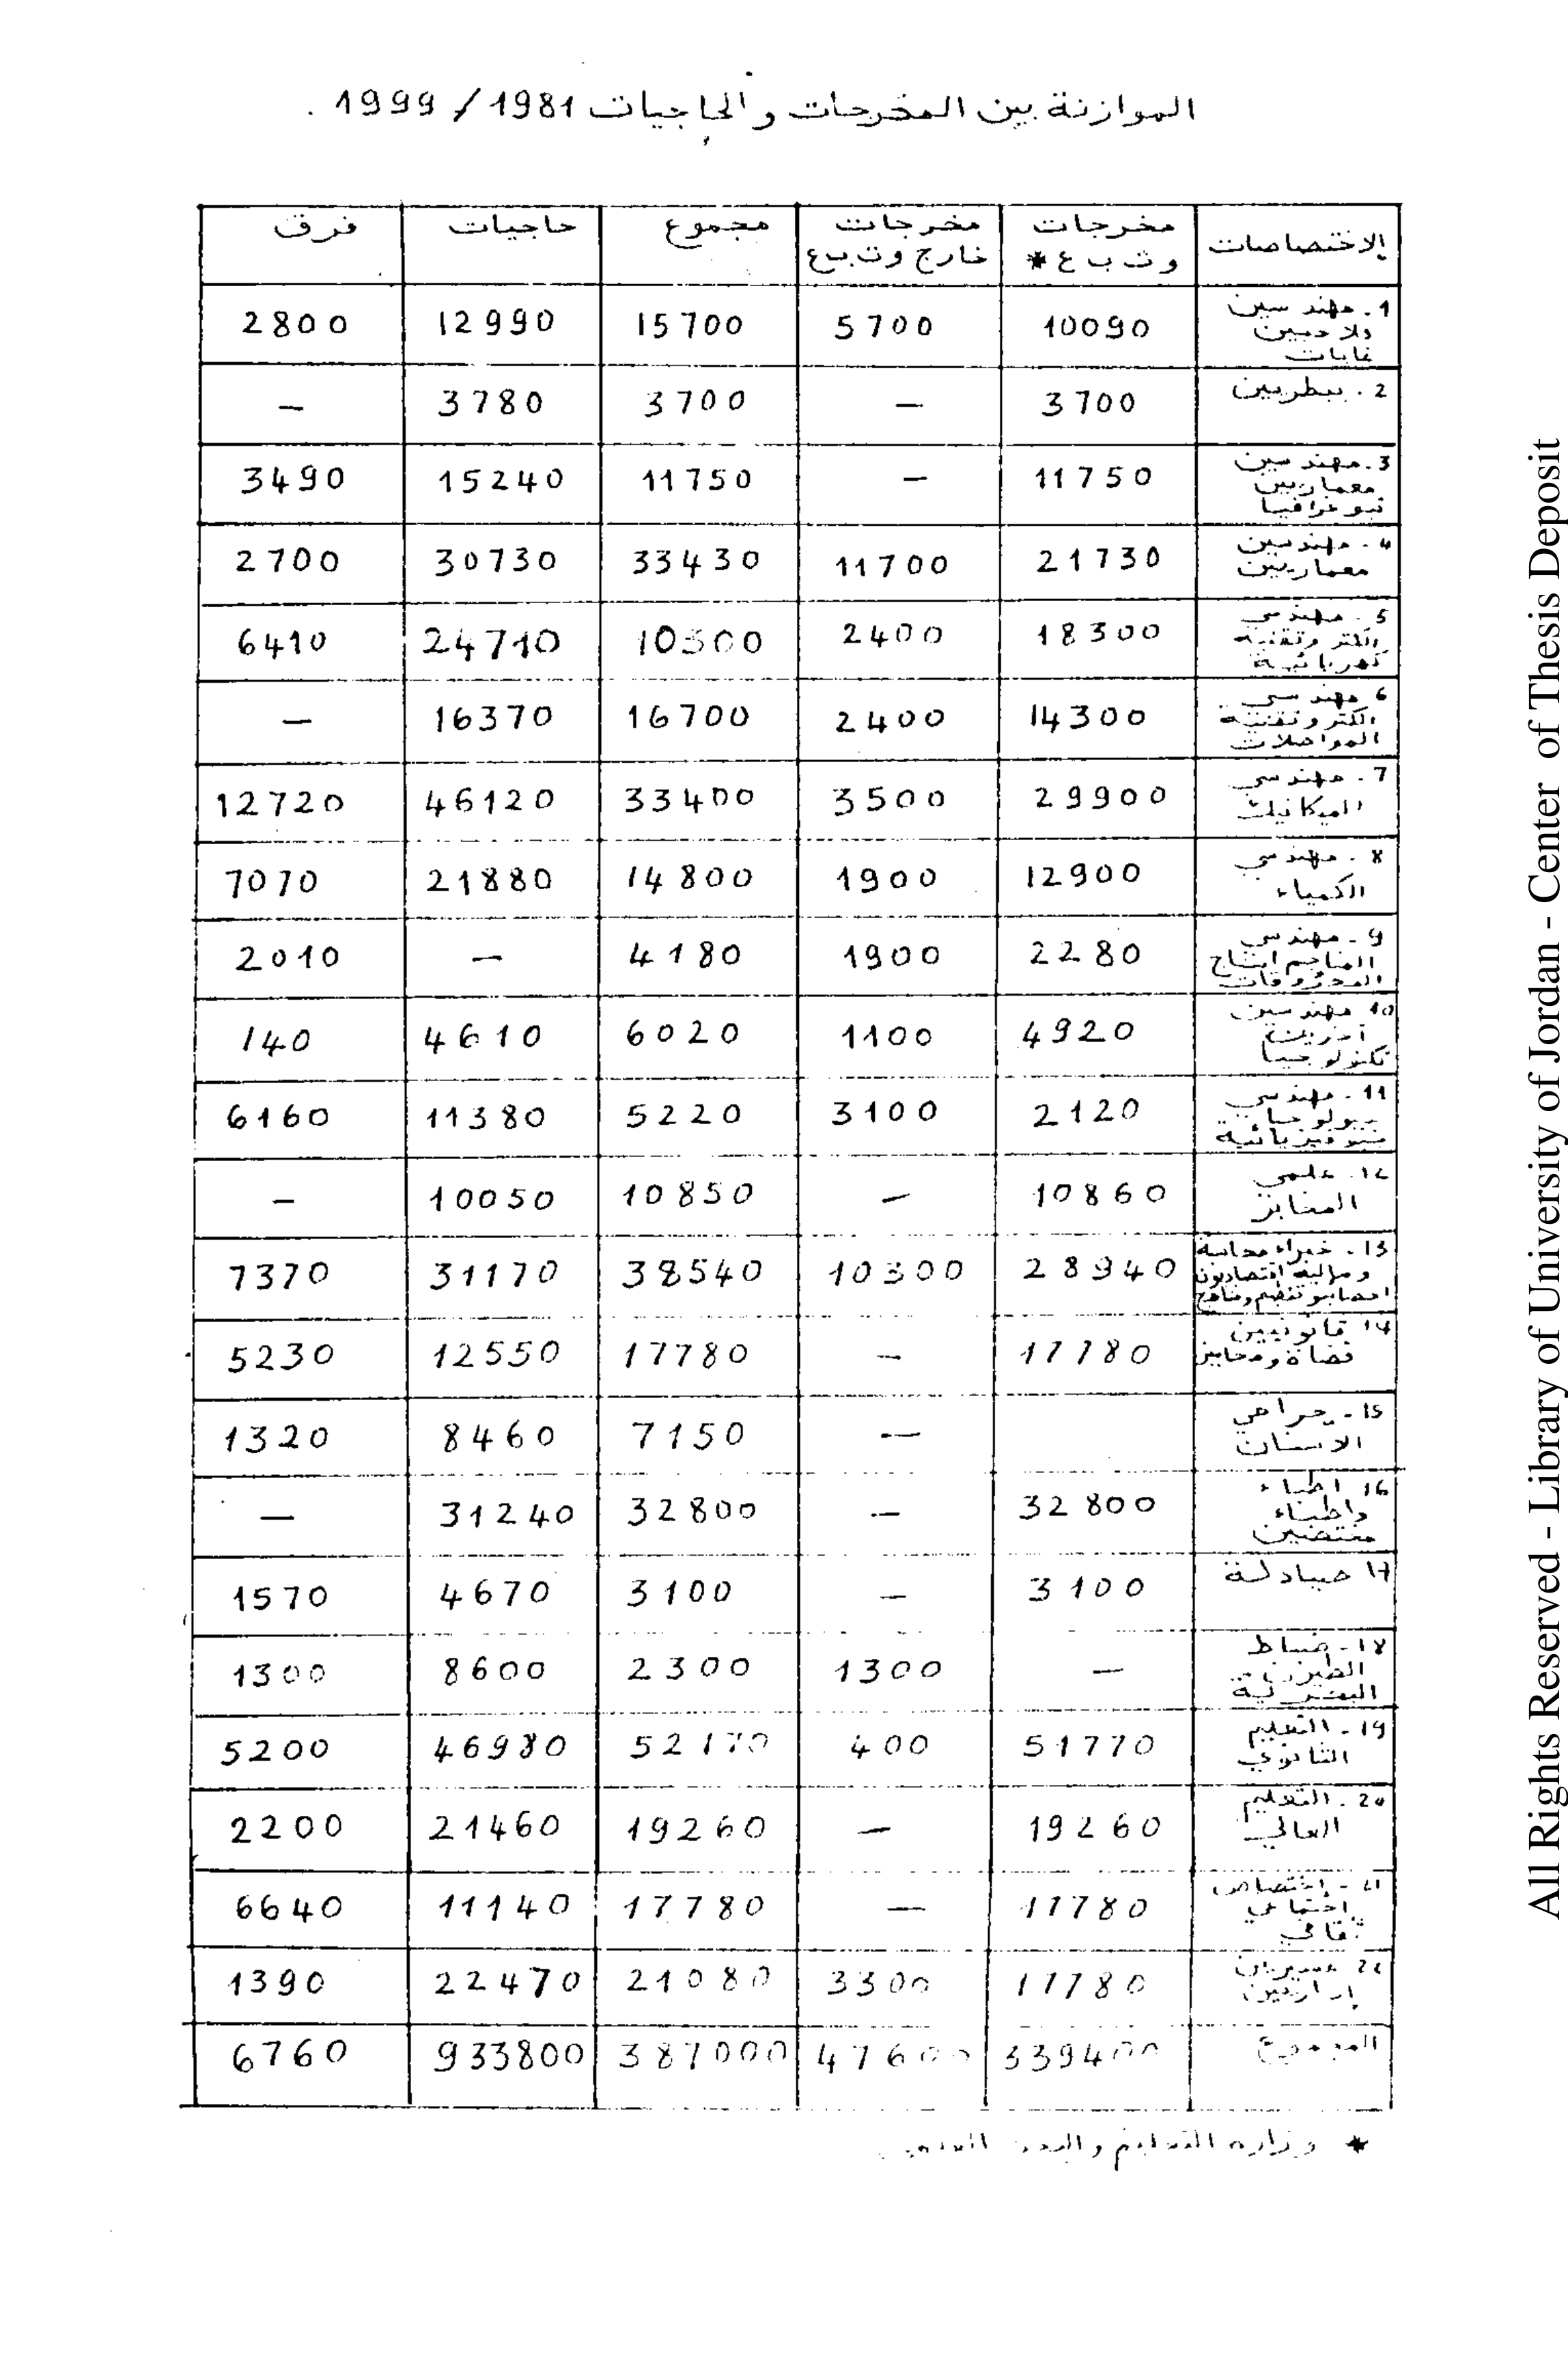 الموازنة بين المخرجات والحاجيات 1981 / 1999 .
الاختصاصات | مخرجات وت ب ع * | مخرجات خارج وت ب ع | مجموع | حاجيات | فرق
1. مهندسين فلاحيين غابات | 10090 | 5700 | 15700 | 12990 | 2800
2. بيطريين | 3700 | — | 3700 | 3780 | —
3. مهندسين معماريين | 11750 | — | 11750 | 15240 | 3490
4. مهندسين معماريين | 21730 | 11700 | 33430 | 30730 | 2700
5. مهندسي الكتروتقنية كهربائية | 18300 | 2400 | 10300 | 24710 | 6410
6 مهندسي الكتروتقنية المواصلات | 14300 | 2400 | 16700 | 16370 | —
7. مهندسي الميكانيك | 29900 | 3500 | 33400 | 46120 | 12720
8. مهندسي الكمياء | 12900 | 1900 | 14800 | 21880 | 7070
9. مهندسي المناجم انتاج المحروقات | 2280 | 1900 | 4180 | — | 2010
10 مهندسين آخرين تكنولوجيا | 4920 | 1100 | 6020 | 4610 | 140
11. مهندسي بيولوجيا | 2120 | 3100 | 5220 | 11380 | 6160
12. علمي المخابر | 10860 | — | 10850 | 10050 | —
13. خبراء محاسبة ومالية اقتصاديون | 28940 | 10300 | 38540 | 31170 | 7370
14 قانونيين قضاة | 17780 | — | 17780 | 12550 | 5230
15. جراحي الاسنان | — | 7150 | 8460 | 1320
16 اطباء واطباء مختصين | 32800 | — | 32800 | 31240 | —
17 صيادلة | 3100 | — | 3100 | 4670 | 1570
18. ضباط | — | 1300 | 2300 | 8600 | 1300
19. التعليم الثانوي | 51770 | 400 | 52170 | 46980 | 5200
20. التعليم العالي | 19260 | — | 19260 | 21460 | 2200
21. إختصاص إجتماعي ثقافي | 17780 | — | 17780 | 11140 | 6640
22 إداريين | 17780 | 3300 | 21080 | 22470 | 1390
المجموع | 339400 | 47600 | 387000 | 933800 | 6760
* وزارة التعليم والبحث العلمي
All Rights Reserved - Library of University of Jordan - Center of Thesis Deposit